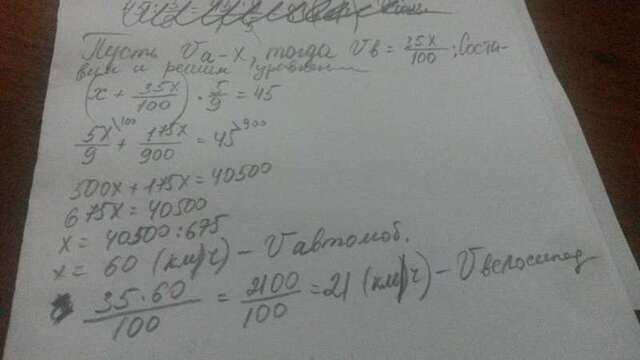 Пусть Vа - х, тогда Vв = 35х/100; Соста-
вим и решим уравнение
(х + 35х/100) · 5/9 = 45
5х/9 \100 + 175х/900 = 45 \900
500х + 175х = 40500
675х = 40500
х = 40500 : 675
х = 60 (км/ч) - Vавтомоб.
35·60/100 = 2100/100 = 21 (км/ч) - Vвелосипед